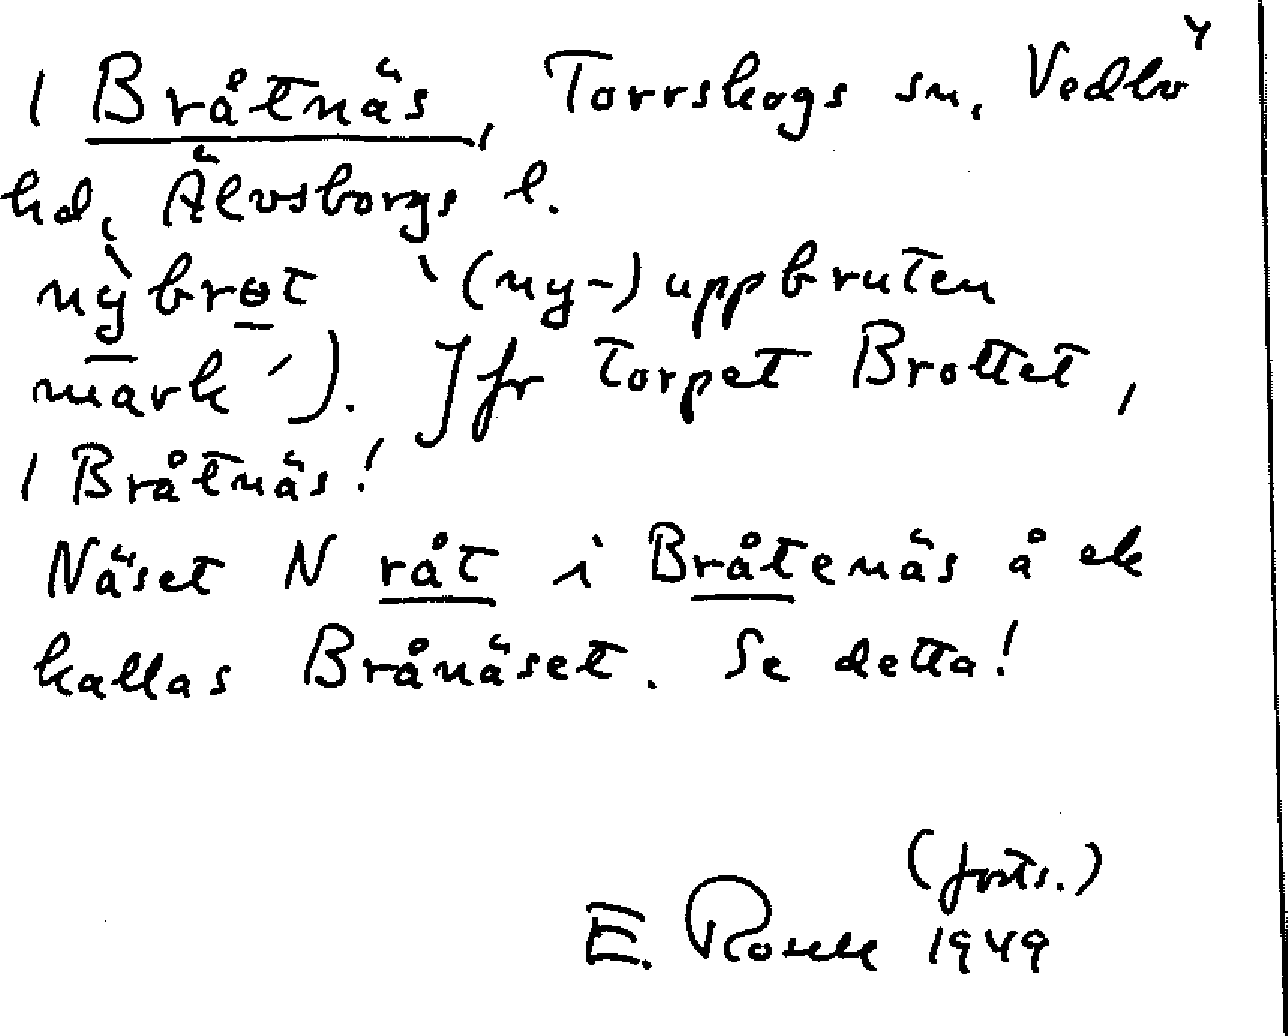 1 Bråtnäs, Torrskogs sn, Vedbo 4
hd, Älvsborgs l.
nỳbrɵt ‵(ny-)uppbruten
mark′). Jfr torpet Brottet,
1 Bråtnäs!
Näset N råt i Bråtenäs å ek
kallas Brånäset. Se detta!
(forts.)
E. 1949